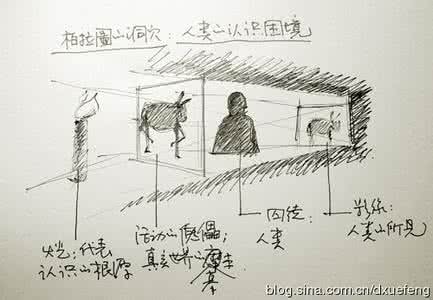 柏拉圖山洞穴:人类山认识困境
火炬:代表
认识山根源
活动山傀儡;
真实世界山摹本
囚徒:
人类
影像:
人类山所見
blog.sina.com.cn/dxuefeng